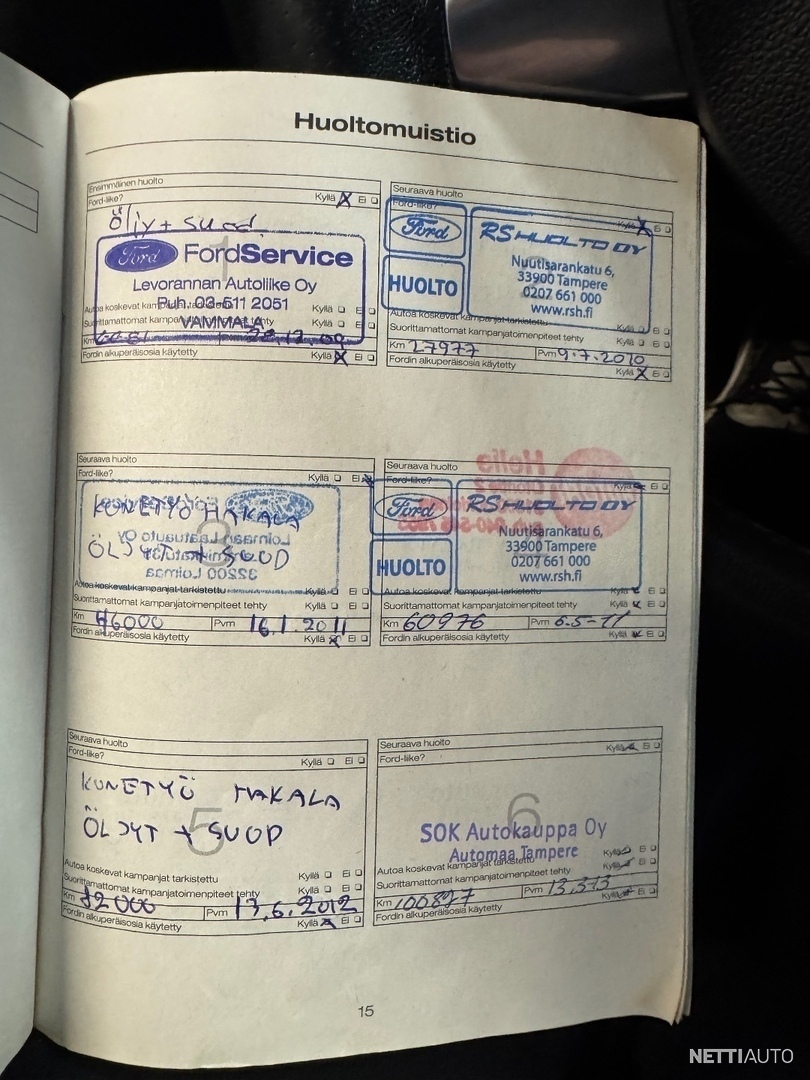 Huoltomuistio
Ensimmäinen huolto
Ford-liike? Kyllä X Ei
Öljy + suod.
1
Ford FordService
Levorannan Autoliike Oy
Puh. 03-511 2051
VAMMALA
Autoa koskevat kampanjat tarkistettu Kyllä Ei
Suorittamattomat kampanjatoimenpiteet tehty Kyllä Ei
Km Pvm
Fordin alkuperäisosia käytetty Kyllä X Ei
Seuraava huolto
Ford-liike? Kyllä X Ei
Ford HUOLTO
RS HUOLTO OY
Nuutisarankatu 6,
33900 Tampere
0207 661 000
www.rsh.fi
Autoa koskevat kampanjat tarkistettu Kyllä Ei
Suorittamattomat kampanjatoimenpiteet tehty Kyllä Ei
Km 27977 Pvm 9.7.2010
Fordin alkuperäisosia käytetty Kyllä X Ei
Seuraava huolto
Ford-liike? Kyllä Ei X
3
KONETYÖ MAKALA
ÖLJYT + SUOD
Loimaan Laatuauto Oy
32200 Loimaa
Autoa koskevat kampanjat tarkistettu Kyllä Ei
Suorittamattomat kampanjatoimenpiteet tehty Kyllä Ei
Km 46000 Pvm 16.1.2011
Fordin alkuperäisosia käytetty Kyllä X Ei
Seuraava huolto
Ford-liike? Kyllä Ei
Ford HUOLTO
RS HUOLTO OY
Nuutisarankatu 6,
33900 Tampere
0207 661 000
www.rsh.fi
Autoa koskevat kampanjat tarkistettu Kyllä Ei
Suorittamattomat kampanjatoimenpiteet tehty Kyllä Ei
Km 60976 Pvm 6.5-11
Fordin alkuperäisosia käytetty Kyllä Ei
Seuraava huolto
Ford-liike? Kyllä Ei
5
KONETYÖ MAKALA
ÖLJYT + SUOD
Autoa koskevat kampanjat tarkistettu Kyllä Ei
Suorittamattomat kampanjatoimenpiteet tehty Kyllä Ei
Km 82000 Pvm 13.6.2012
Fordin alkuperäisosia käytetty Kyllä X Ei
Seuraava huolto
Ford-liike? Kyllä Ei
6
SOK Autokauppa Oy
Automaa Tampere
Autoa koskevat kampanjat tarkistettu Kyllä Ei
Suorittamattomat kampanjatoimenpiteet tehty Kyllä Ei
Km 100897 Pvm 13.3.13
Fordin alkuperäisosia käytetty Kyllä Ei
15
NETTIAUTO